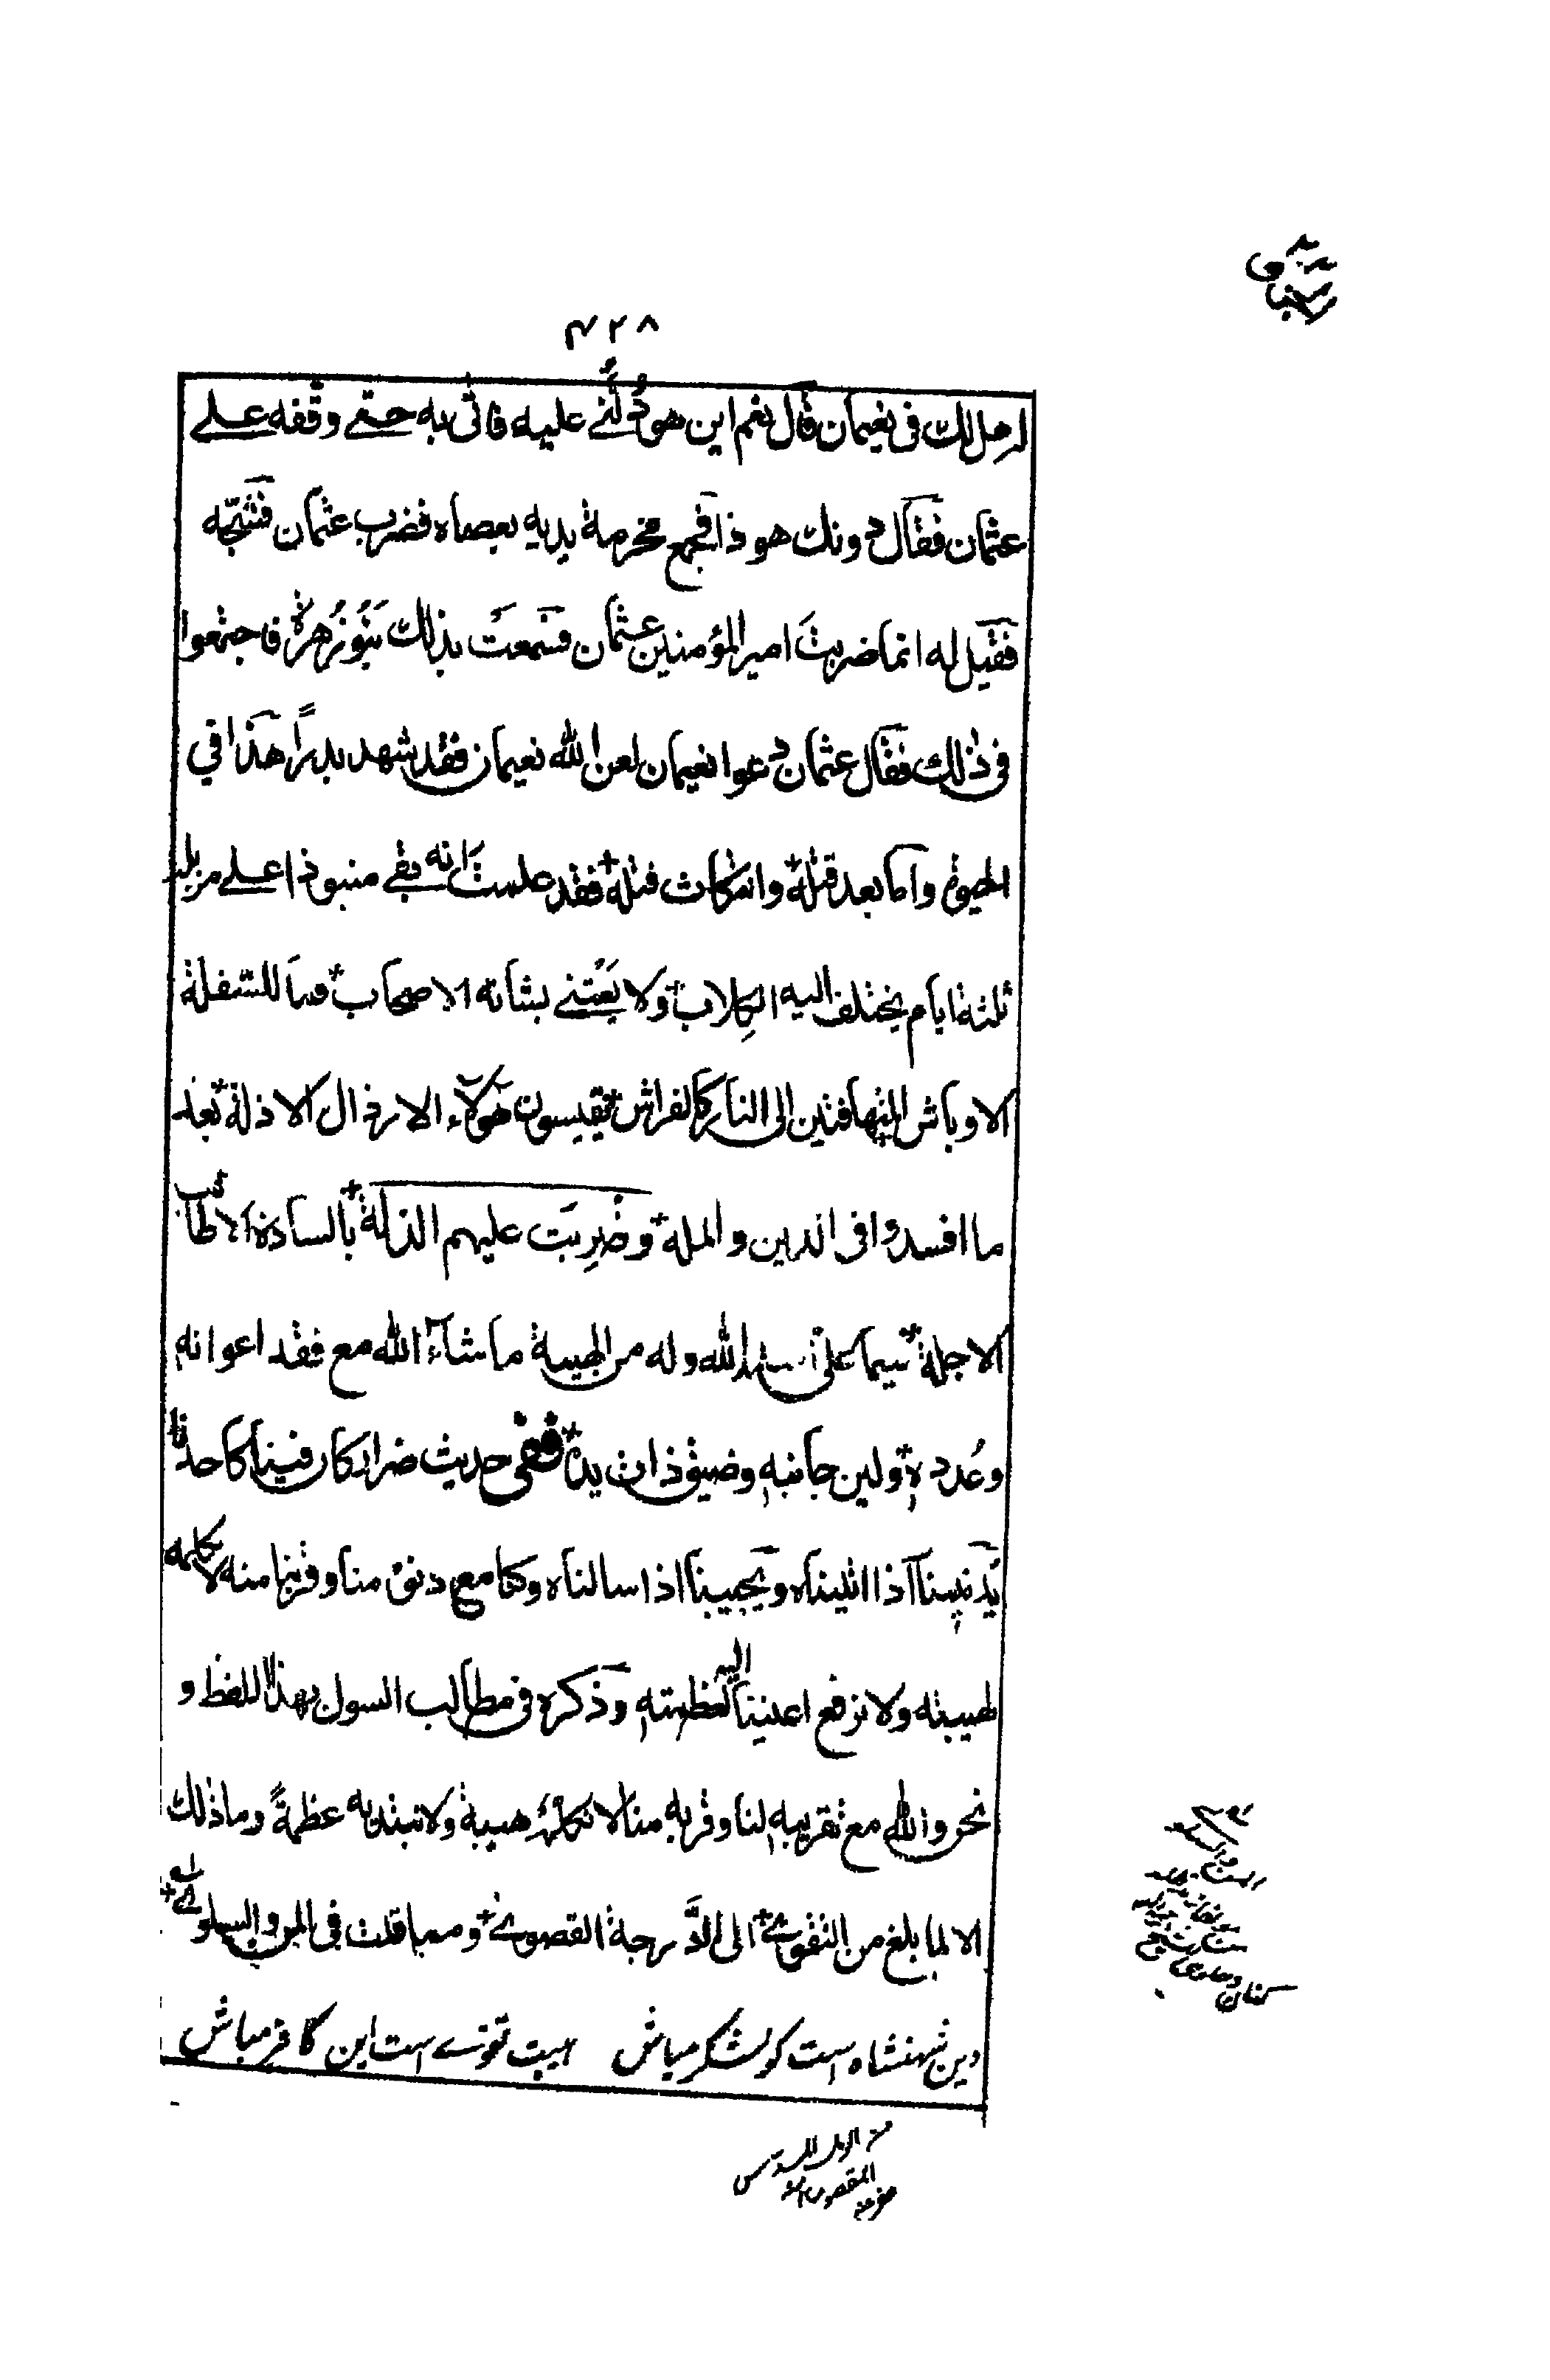 ۴۲۸
له هل لك فى نعيمان قال نعم اين هو دُلَّنى عليه فاتى به حتى وقفه على
عثمان فقال دونك هو ذا فجمع مخرمة يديه بعصاه فضرب عثمان فشجّه
فقيل له انما ضربتَ امير المؤمنين عثمان فسمعت بذلك بَنُو زُهرة فاجتمعوا
فى ذلك فقال عثمان دعوا نعيمان لعن الله نعيمان فقد شهد بدرًا هذا في
الحيوة واما بعد قتله وانتكاث فتله فقد علمتَ انه بقى منبوذا على مزبلة
ثلثة ايام يختلف اليه الكِلاب ولا يَعْتنى بشانه الاصحاب فما للسفلة
الاوباش المتهافتين الى النار كالفراش يقيسون هؤلاء الارذال الاذلة بعد
ما افسدوا فى الدين والملة وضُرِبَت عليهم الذلة بالسادة الاطائب
الاجلة سيما على اسد الله وله من الهيبة ما شاء الله مع فقد اعوانه
وعُدده ولين جانبه وضيق ذات يده ففى حديث ضرار كان فينا كاحدنا
يُدنينا اذا اتيناه ويجيبنا اذا سالناه وكنا مع دنوّه منا وقربنا منه لا نكلمه
لهيبته ولا نرفع اعيننا اليه لعظمته وذكره فى مطالب السول بهذا اللفظ و
نحن والله مع تقريبه لنا وقربه منا لا نكلمه هيبة ولا نبتديه عظمةً وما ذلك
الا لما بلغ من التقوى الى الدَّرجة القصوى ومما قلت فى المن والسلوى
دين شهنشاه است كو لشكر مباش هيبت تقوى است اين كافر مباش